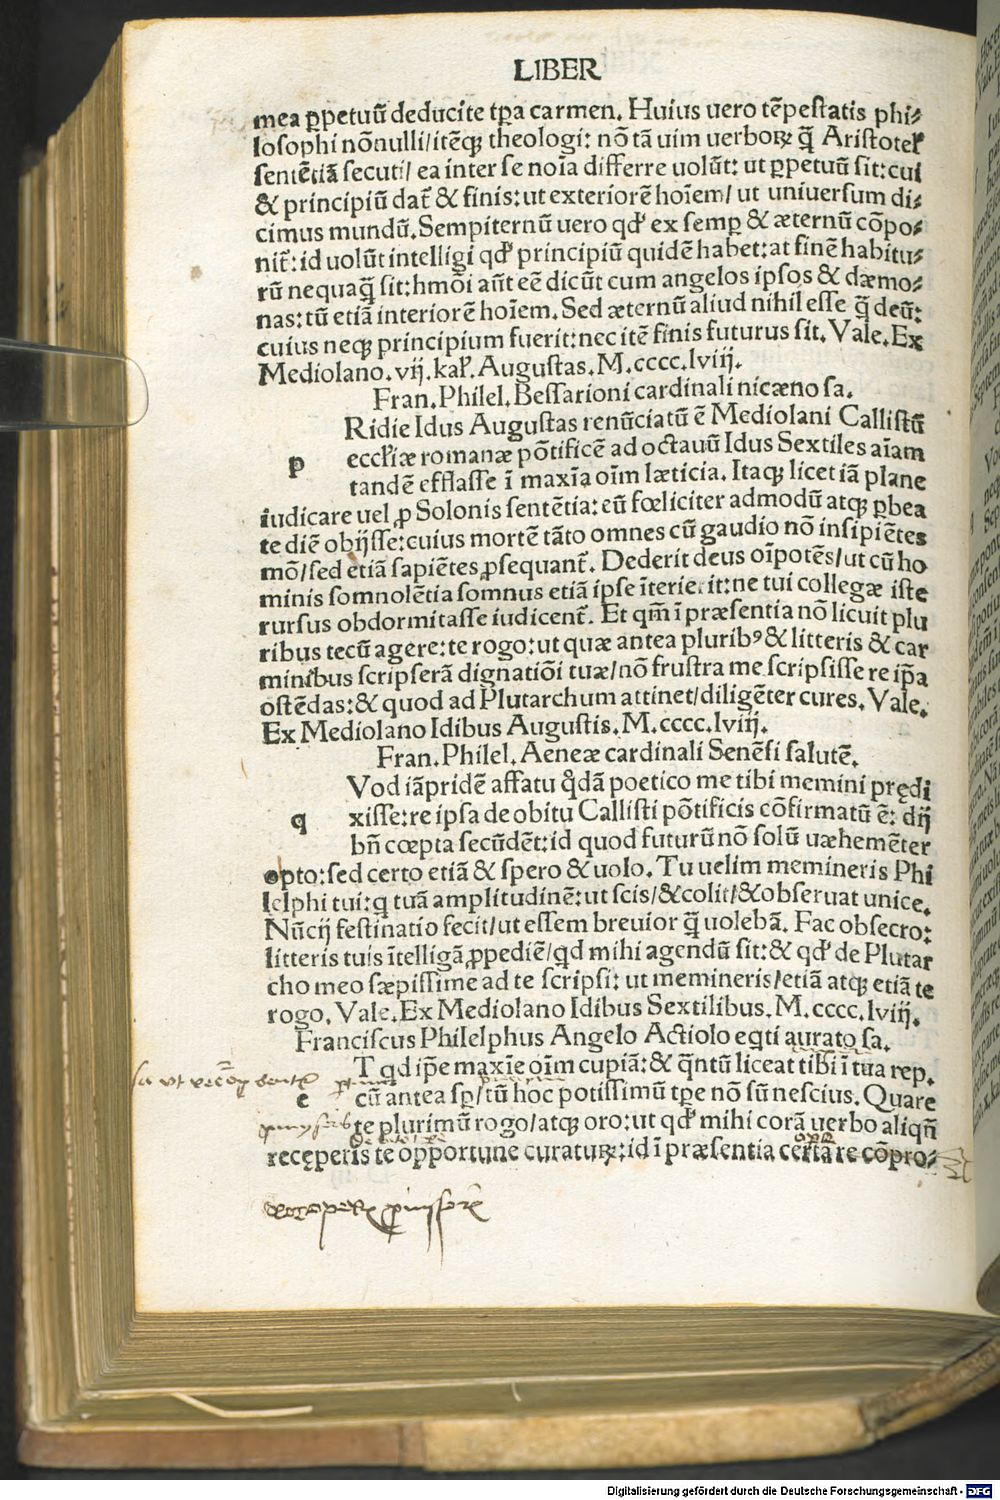 LIBER
mea ꝑpetuū deducite tꝑa carmen. Huius uero tēpestatis phi⸗
losophi nōnulli/itēqꝫ theologi: nō tā uim uerboꝝ q̄ Aristotel'
sentētiā secuti/ ea inter se noīa differre uolūt: ut ꝑpetuū sit: cui
& principiū dat̄ & finis: ut exteriorē hoīem/ ut uniuersum di⸗
cimus mundū. Sempiternū uero qd' ex semꝑ & æternū cōpo⸗
nit̄: id uolūt intelligi qd' principiū quidē habet: at finē habitu⸗
rū nequaq̄ sit: hmōi aūt eē dicūt cum angelos ipsos & dæmo⸗
nas: tū etiā interiorē hoīem. Sed æternū aliud nihil esse q̄ deū:
cuius neqꝫ principium fuerit: nec itē finis futurus sit. Vale. Ex
Mediolano. vij. kal'. Augustas. M. cccc. lviij.
Fran. Philel. Bessarioni cardinali nicæno sa.
Ridie Idus Augustas renūciatū ē Mediolani Callistū
p eccl'iæ romanæ pōtificē ad octauū Idus Sextiles aīam
tandē efflasse ī maxīa oīm læticia. Itaqꝫ licet iā plane
iudicare uel ꝓ Solonis sentētia: eū fœliciter admodū atqꝫ ꝑbea
te diē obijsse: cuius mortē tāto omnes cū gaudio nō insipiētes
mō/sed etiā sapiētes ꝓsequant̄. Dederit deus oīpotēs/ut cū ho
minis somnolētia somnus etiā ipse īterierit: ne tui collegæ iste
rursus obdormitasse iudicent̄. Et qm̄ ī præsentia nō licuit plu
ribus tecū agere: te rogo: ut quæ antea pluribꝰ & litteris & car
minibus scripserā dignatiōi tuæ/nō frustra me scripsisse re ip̄a
ostēdas: & quod ad Plutarchum attinet/diligēter cures. Vale.
Ex Mediolano Idibus Augustis. M. cccc. lviij.
Fran. Philel. Aeneæ cardinali Senēsi salutē.
Vod iāpridē affatu q̊dā poetico me tibi memini prędi
q xisse: re ipsa de obitu Callisti pōtificis cōfirmatū ē: dij
bn̄ cœpta secūdēt: id quod futurū nō solū uæhemēter
opto: sed certo etiā & spero & uolo. Tu uelim memineris Phi
lelphi tui: q tuā amplitudinē: ut scis/&colit/&obseruat unice.
Nūcij festinatio fecit/ut essem breuior q̄ uolebā. Fac obsecro:
litteris tuis ītelligā ꝓpediē/qd mihi agendū sit: & qd' de Plutar
cho meo sæpissime ad te scripsi: ut memineris/etiā atqꝫ etiā te
rogo. Vale. Ex Mediolano Idibus Sextilibus. M. cccc. lviij.
Franciscus Philelphus Angelo Actiolo eqti aurato sa.
T qd ip̄e maxīe oīm cupiā: & q̄ntū liceat tibi ī tua rep.
e cū antea sꝑ/tū hoc potissimū tꝑe nō sū nescius. Quare
te plurimū rogo/atqꝫ oro: ut qd' mihi corā uerbo aliqn̄
recęperis te opportune curaturꝝ: id ī præsentia certare cōpro⸗
Digitalisierung gefördert durch die Deutsche Forschungsgemeinschaft - DFG